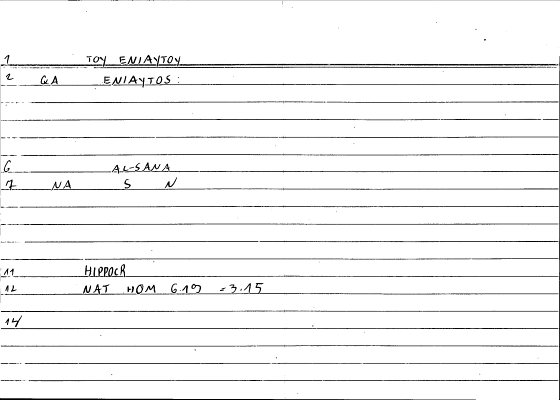 1 ΤΟΥ ΕΝΙΑΥΤΟΥ
2 QA ΕΝΙΑΥΤΟS :
6 AL-SANA
7 NA S N
11 HIPPOCR
12 NAT HOM 6.19 =3.15
14